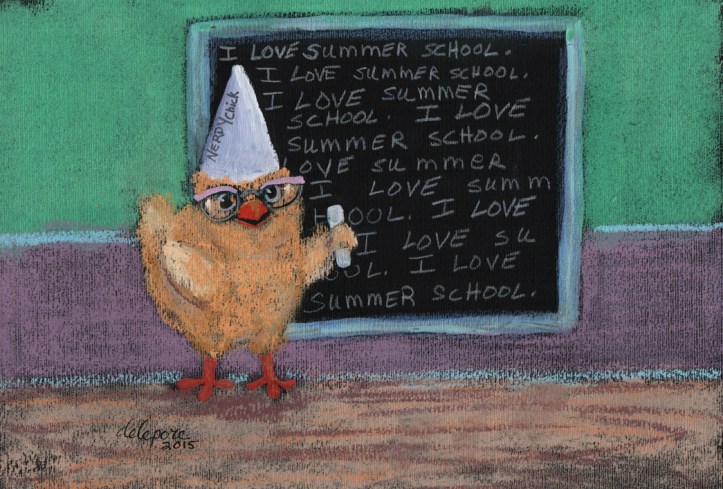 I LOVE SUMMER SCHOOL.
I LOVE SUMMER SCHOOL.
I LOVE SUMMER
SCHOOL. I LOVE
SUMMER SCHOOL.
LOVE SUMMER.
I LOVE SUMM
HOOL. I LOVE
I LOVE SU
OOL. I LOVE
SUMMER SCHOOL.
NERDY Chick
delepore
2015